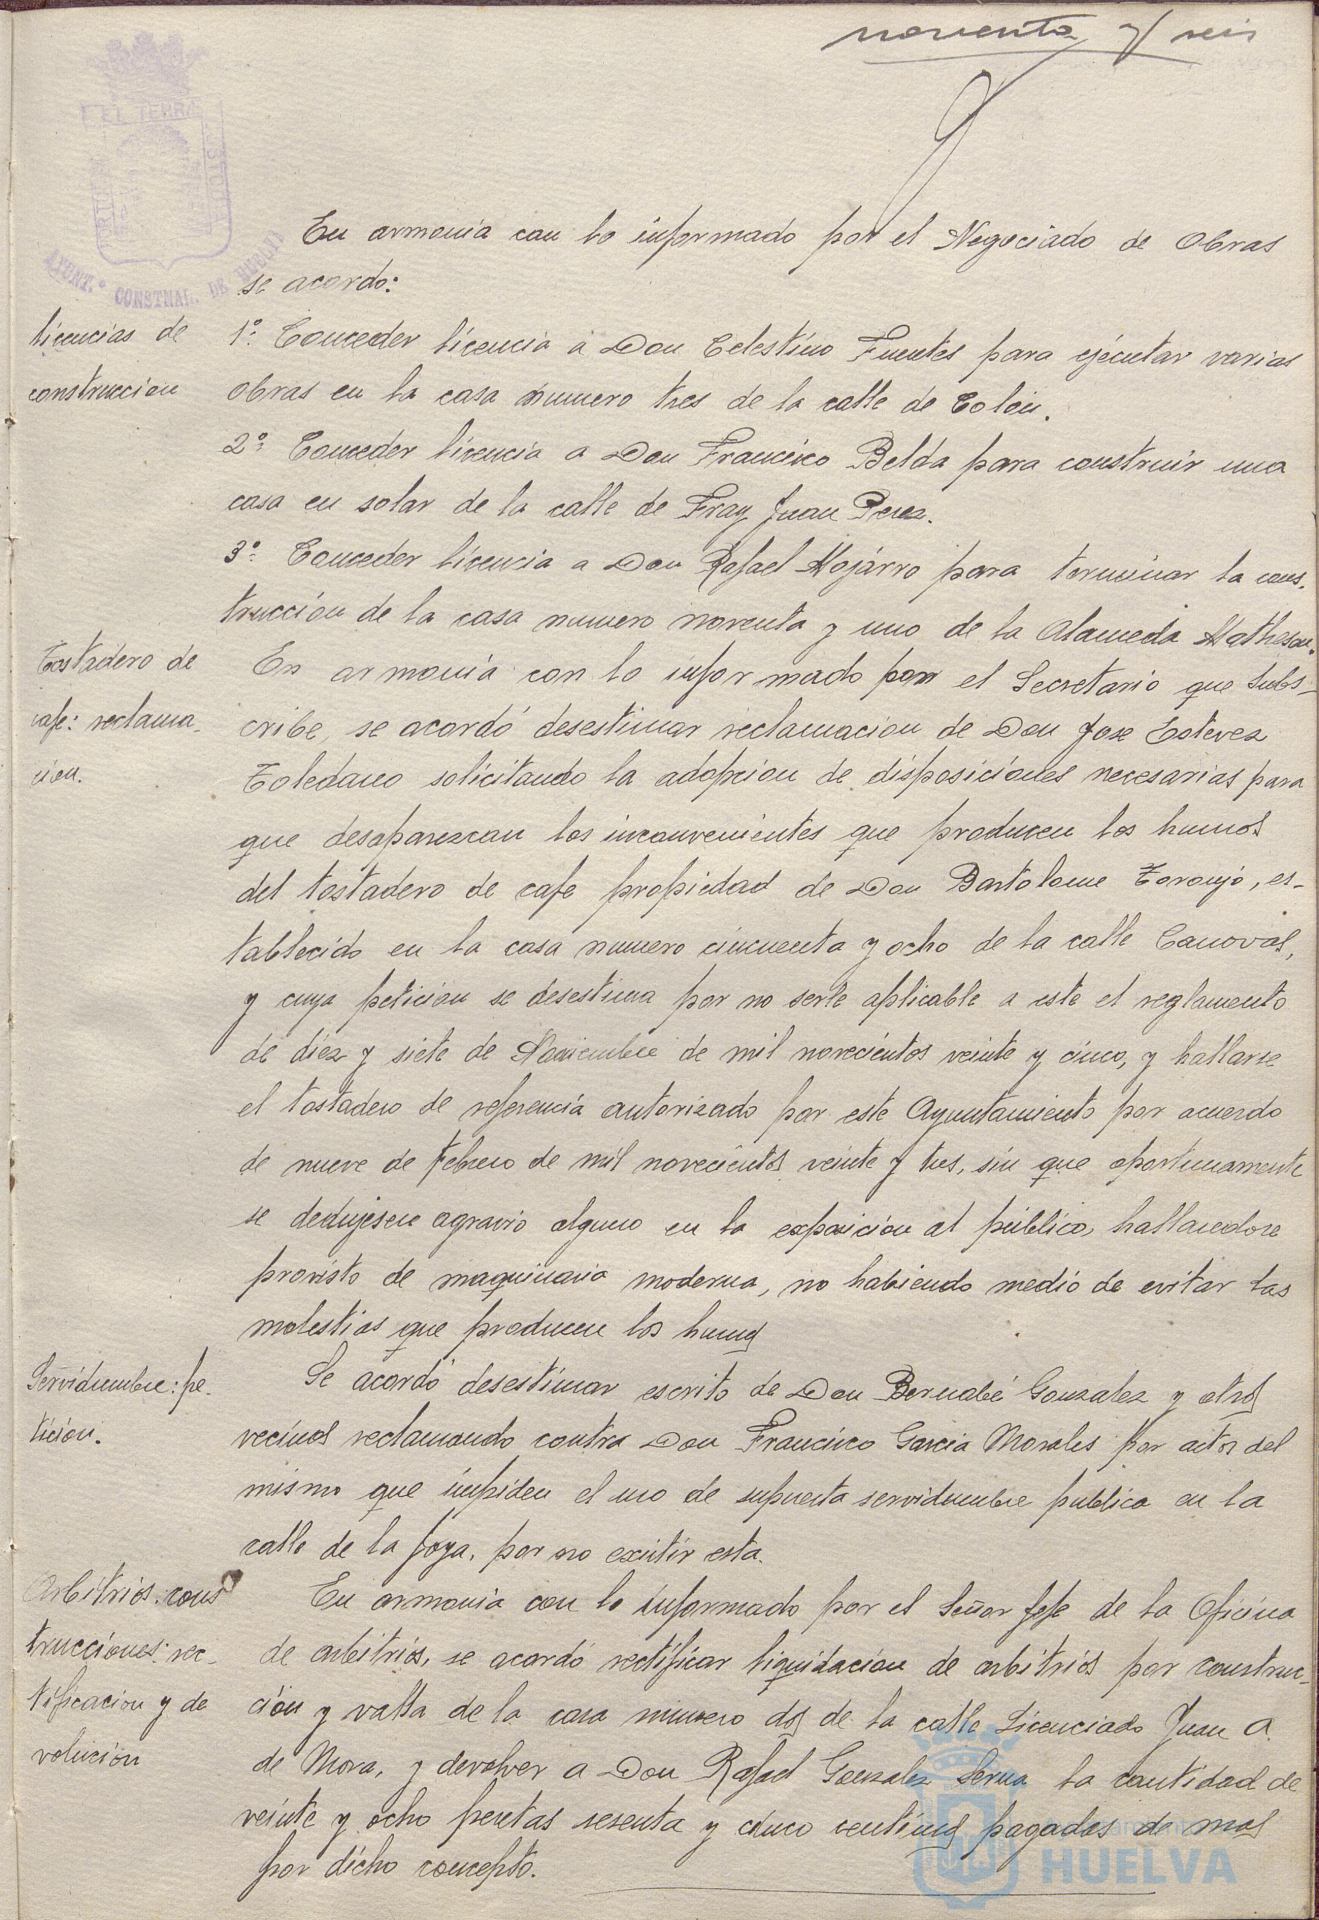 noventa y seis
PORTUS MARIS
ET TERRAE
CUSTODIA
AYUNT.º CONSTNAL. DE HUELVA
En armonia con lo informado por el Negociado de Obras
se acordo:
licencias de
construccion
1º: Conceder licencia a Don Celestino Fuentes para ejecutar varias
obras en la casa numero tres de la calle de Colón.
2º: Conceder licencia a Don Francisco Belda para construir una
casa en solar de la calle de Fray Juan Perez.
3º: Conceder licencia a Don Rafael Mojarro para terminar la cons-
trucción de la casa numero noventa y uno de la Alameda Matheson.
Tostadero de
cafe: reclama-
cion.
En armonia con lo informado por el Secretario que subs-
cribe, se acordó desestimar reclamacion de Don Jose Estevez
Toledano solicitando la adopcion de disposiciones necesarias para
que desaparezcan los inconvenientes que producen los humos
del tostadero de cafe propiedad de Don Bartolome Toronjo, es-
tablecido en la casa numero cincuenta y ocho de la calle Canovas,
y cuya peticion se desestima por no serle aplicable a este el reglamento
de diez y siete de Noviembre de mil novecientos veinte y cinco, y hallarse
el tostadero de referencia autorizado por este Ayuntamiento por acuerdo
de nueve de febrero de mil novecientos veinte y tres, sin que oportunamente
se dedujesen agravio alguno en la exposición al público, hallandose
provisto de maquinaria moderna, no habiendo medio de evitar las
molestias que producen los humos
Servidumbre: pe-
tición.
Se acordó desestimar escrito de Don Bernabé Gonzalez y otros
vecinos reclamando contra Don Francisco Garcia Morales por actos del
mismo que impiden el uso de supuesta servidumbre publica en la
calle de la Joya, por no existir esta.
Arbitrios: cons
trucciones: rec-
tificacion y de
volución
En armonia con lo informado por el Señor Jefe de la Oficina
de arbitrios, se acordó rectificar liquidacion de arbitrios por construc-
ción y valla de la casa numero dos de la calle Licenciado Juan A.
de Mora, y devolver a Don Rafael Gonzalez Serna la cantidad de
veinte y ocho pesetas sesenta y cinco centims pagadas de mas
por dicho concepto.
Ayuntamiento
HUELVA